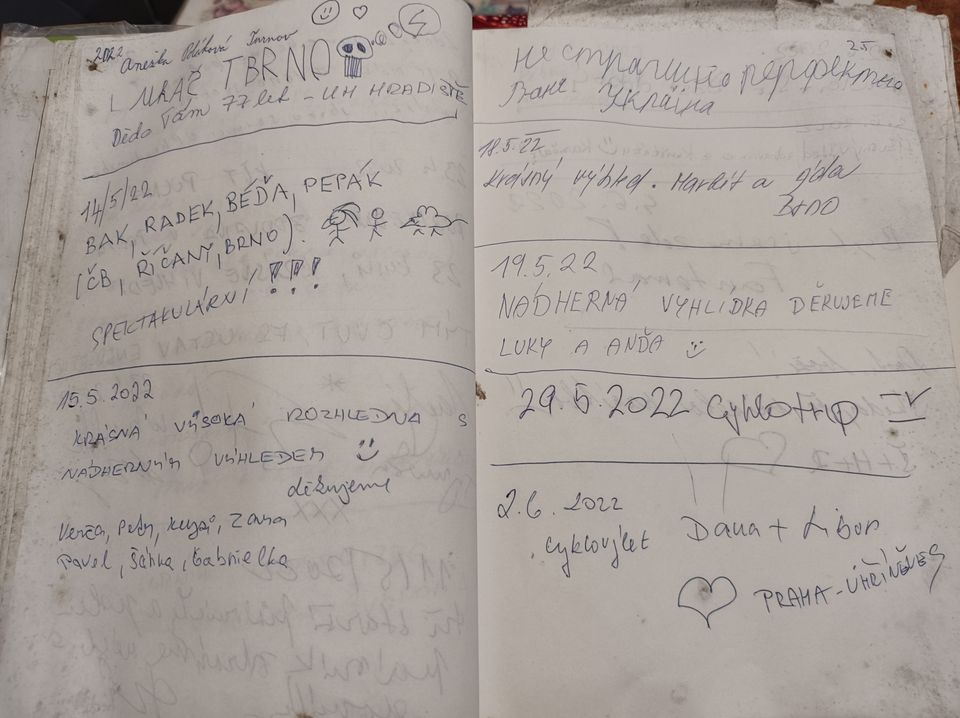 2022 Anežka Poláková Turnov
L MRAČ TBRNO
Dědo Tám 77 let - UH HRADIŠTĚ
14/5/22
BAK, RADEK, BÉĎA, PEPÁK
(ČB, ŘÍČANY, BRNO).
SPEKTAKULÁRNÍ !!!
15.5.2022
KRÁSNÁ VYSOKÁ ROZHLEDNA S
NÁDHERNÝM VÝHLEDEM
děkujeme
Verča, Petr, Zana
Pavel, Šárka, Gabrielka
25
не страшно перфектно
Україна
18.5.22
krásný výhled. Markét a gába
BRNO
19.5.22
NÁDHERNÁ VYHLIDKA DĚKUJEME
LUKY A ANĎA
29.5.2022 Cyklotrip IV
2.6.2022
cyklovýlet Dana + Libor
PRAHA-ÚHŘINĚVES